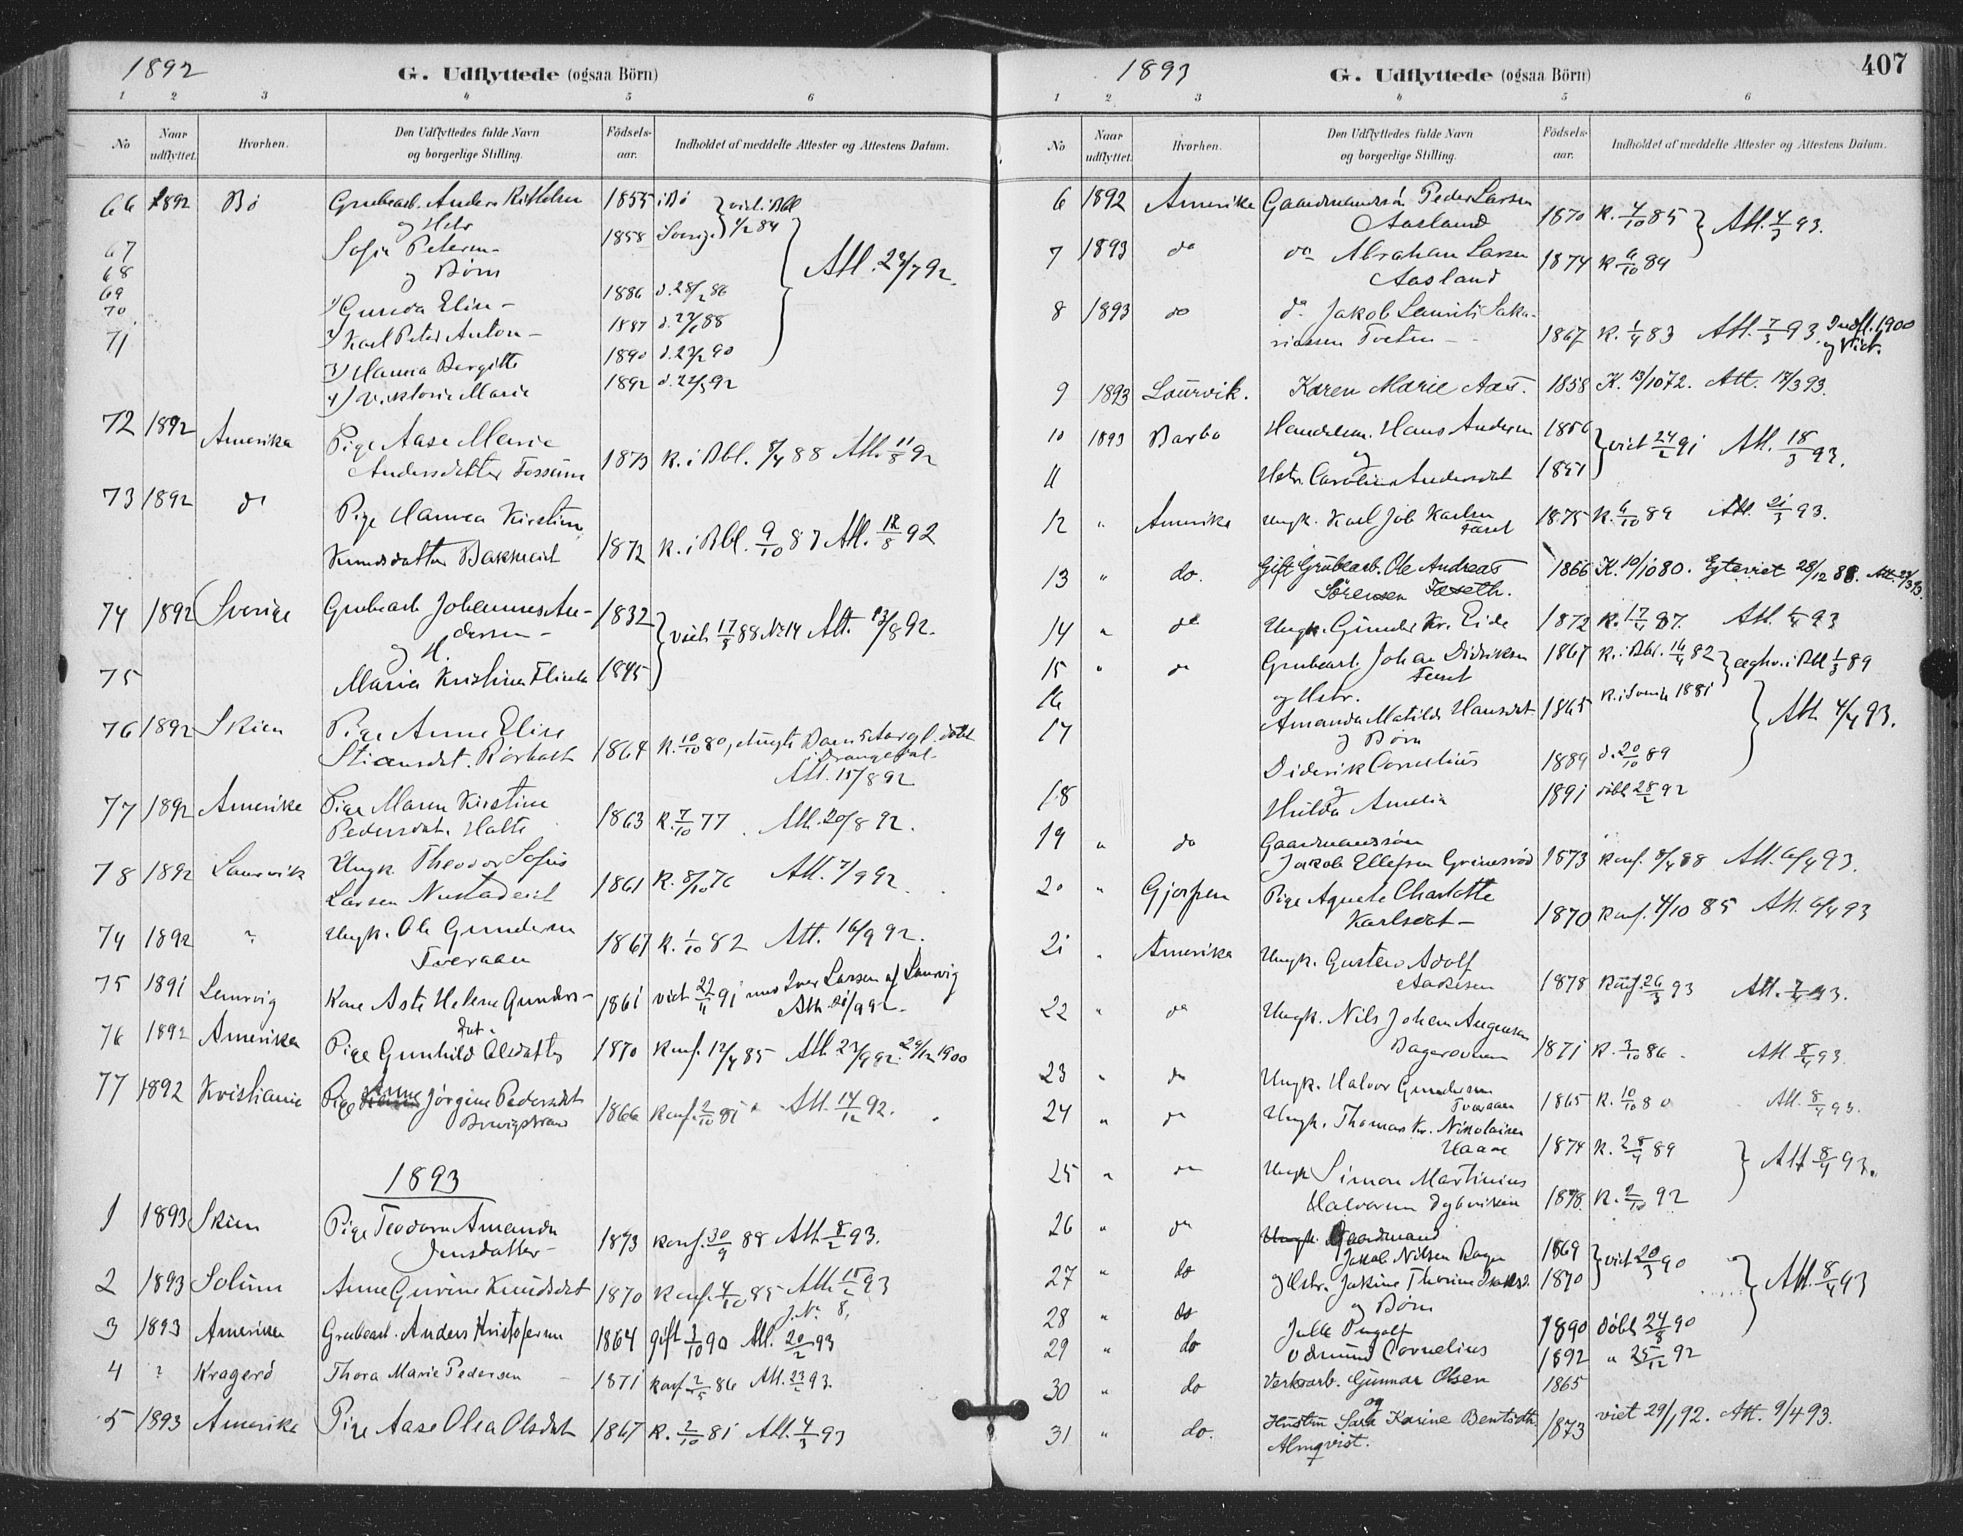 1892
G. Udflyttede (ogsaa Börn)
1 2 3 4 5 6
No Naar udflyttet. Hvorhen. Den Udflyttedes fulde Navn og borgerlige Stilling. Födselsaar. Indholdet af meddelte Attester og Attestens Datum.
66 1892 Bø Grubearb. Anders Kittelsen 1855 i Bø
og Hstr
67 Sofie Petersen 1858 Sverige
68 og Børn Att. 23/7 92.
69 1) Gunda Elise 1886 d. 28/2 86
70 2) Karl Peter Anton 1887
71 3) Hanna Bergitte 1890
4) Viktoria Marie 1892
72 1892 Amerika Pige Aase Marie
Andersdatter Fossum 1873 K. i Bbl. 8/4 88 Att. 11/8 92
73 1892 do Pige Hanna Kirstine
Knudsdatter 1872 K. i Bbl. 9/10 87 Att. 18/8 92
74 1892 Sverige Grubearb Johannes An-
dersen 1832 viet 17/3 88 No 14 Att. 13/8 92.
og H.
75 Maria Kristina 1845
76 1892 Skien Pige Anne Elise
Stiansdat. Rørholt 1864 K. 10/10 80, døbt
i Drangedal
Att. 15/8 92
77 1892 Amerika Pige Maren Kirstine
Pedersdat. Halte 1863 K. 7/10 77 Att. 20/8 92.
78 1892 Laurvik Ungk. Theodor Sofus
Larsen 1861 K. 8/10 76 Att. 7/9 92.
74 1892 " Ungk. Ole Gundersen
Tveraaen 1867 K. 1/10 82 Att. 16/9 92.
75 1891 Laurvig Kone Aste Helene Gunders-
dat. 1861 viet 22/11 91 med Iver Larsen af Laurvig
Att. 21/9 92.
76 1892 Amerika Pige Gunhild Olsdatter 1870 Konf. 12/4 85 Att. 23/9 92. 29/12 1900
77 1892 Kristiania Pige Anne Jørgine Pedersdat 1866 Konf. 2/10 81 Att. 14/12 92.
1893
1 1893 Skien Pige Teodora Amanda
Jensdatter 1873 Konf. 30/9 88 Att. 8/2 93.
2 1893 Solum Anne Gurine Knudsdat 1870 Konf. 4/10 85 Att. 15/2 93
J. No 8.
3 1893 Amerika Grubearb. Anders Kristofersen 1864 gift 3/10 90 Att. 20/2 93
4 " Kragerö Thora Marie Pedersen 1871 Konf. 2/5 86 Att. 23/2 93.
5 1893 Amerika Pige Aase Olea Olsdat 1867 K. 2/10 81 Att. 4/3 93
1893
G. Udflyttede (ogsaa Börn)
407
1 2 3 4 5 6
No Naar udflyttet. Hvorhen. Den Udflyttedes fulde Navn og borgerlige Stilling. Födselsaar. Indholdet af meddelte Attester og Attestens Datum.
6 1892 Amerika Gaardmandssøn Peder Larsen
Aasland 1870 K. 4/10 85 Att. 4/3 93.
7 1893 do do Abraham Larsen
Aasland 1874 K 6/10 89
8 1893 do do Jakob Laurits Saka-
riassen Tveten 1867 K. 1/4 83 Att. 7/3 93. Indfl. 1900
9 1893 Laurvik. Karen Marie Aas. 1858 K. 13/10 72. Att. 17/3 93.
10 1893 Barbo Handelsm. Hans Andersen 1856 viet 24/2 91 Att. 18/3 93.
og
11 Hstr. Caroline Andersdat 1851
12 " Amerika Ungk. Karl Job Karlsen
1875 K. 6/10 89 Att. 21/3 93.
13 " do. Gift Grubearb. Ole Andreas
Sörensen Taseth. 1866 K. 10/10 80. Egteviet 28/12 88. Att. 27/3 93.
14 " do Ungk. Gunder Kr. Eide 1872 K. 17/4 87. Att. 4/4 93
15 " do Grubearb. Johan Didriksen 1867 K. i Bbl. 16/4 82 ægtev. i Bbl 1/3 89
16 og Hstr.
Amanda Matilde Hansdat 1865 K. i Svenik 1881 Att. 4/4 93.
17 og Børn
Diderik Cornelius 1889 d. 20/10 89
18 og
Hulda Amelia 1891 døbt 28/2 92
19 " do Gaardmandssøn
Jakob Ellefsen Grimsrød 1873 Konf. 8/4 88 Att. 6/4 93.
20 " Gjerpen Pige Agnete Charlotte
Karlsdat 1870 Konf. 4/10 85 Att. 6/4 93
21 " Amerika Ungk. Gustav Adolf
1878 Konf. 26/3 93 Att. 7/4 93.
22 " do Ungk. Nils Johan Augensen
1871 K. 3/10 86 Att. 8/4 93.
23 " do Ungk. Halvor Gundersen
Tveraaen 1865 K. 10/10 80 Att. 8/4 93.
24 " do Ungk. Thomas Kr. Nikolaisen
1874 K. 28/4 89 Att 8/4 93.
25 " do Ungk Simon Martinius
Halvorsen Dybviken 1878. K. 2/10 92
26 " do Ungk. Gaardmand
Jakob Nilsen 1869 viet 20/3 90
27 " do og Hstr. Jakine Thorine 1870 Att. 8/4 93
og Børn
28 " do 1890 døbt 24/8 90
29 " do Edmund Cornelius 1892 " 25/12 92
30 " do Verksarb. Gunnar Olsen 1865
og
31 " do. Hustru Sara Karine Bentsdtr. 1873 viet 29/1 92. Att. 9/4 93.
Almqvist.